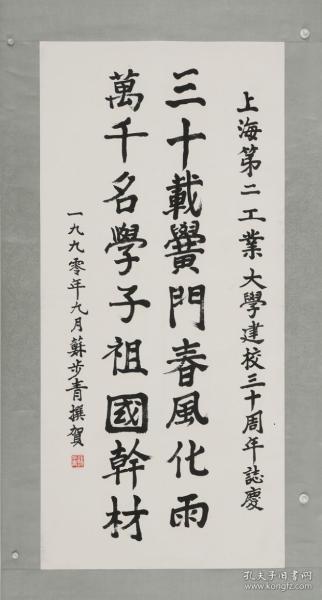 上海第二工業大學建校三十周年誌慶
三十載黌門春風化雨
萬千名學子祖國幹材
一九九零年九月蘇步青撰賀
孔夫子旧书网